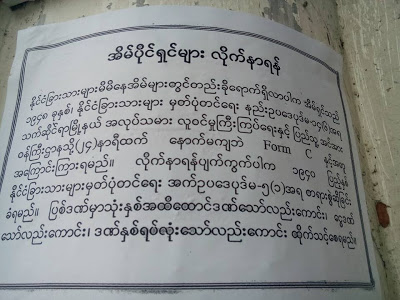 အိမ်ပိုင်ရှင်များ လိုက်နာရန်
နိုင်ငံခြားသားများမိမိနေအိမ်များတွင်တည်းခိုရောက်ရှိလာပါက အိမ်ရှင်သည်
၁၉၄၈ ခုနှစ်၊ နိုင်ငံခြားသားများ မှတ်ပုံတင်ရေး နည်းဥပဒေပုဒ်မ-၁၄(၆)အရ
သက်ဆိုင်ရာမြို့နယ် အလုပ်သမား လူဝင်မှုကြီးကြပ်ရေးနှင့် ပြည်သူ့ အင်အား
ဝန်ကြီးဌာနသို့(၂၄)နာရီထက် နောက်မကျဘဲ Form C နှင့်အတူ
အကြောင်းကြားရမည်။ လိုက်နာရန်ပျက်ကွက်ပါက ၁၉၄၀ ပြည့်နှစ်
နိုင်ငံခြားသားများမှတ်ပုံတင်ရေး အက်ဥပဒေပုဒ်မ-၅(၁)အရ စာရားစွဲဆိုခြင်း
ခံရမည်။ ပြစ်ဒဏ်မှာသုံးနှစ်အထိထောင်ဒဏ်သော်လည်းကောင်း၊ ငွေဒဏ်
သော်လည်းကောင်း၊ ဒဏ်နှစ်ရပ်လုံးသော်လည်းကောင်း ထိုက်သင့်စေရမည်။